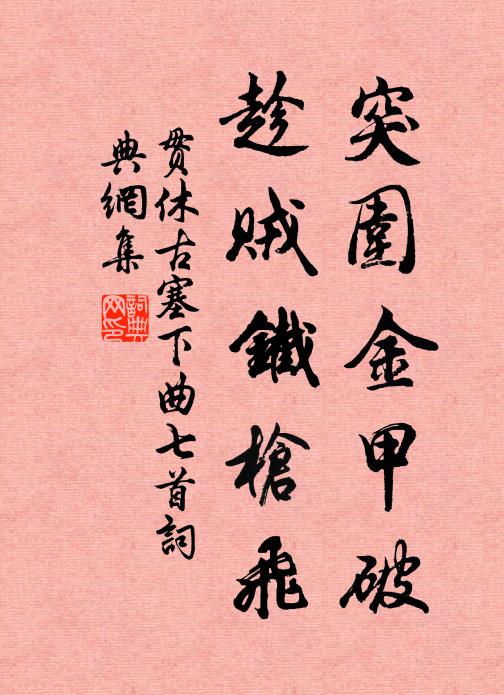 突圍金甲破
趁賊鐵槍飛
貫休古塞下曲七首詞
典網集
詞典
網印